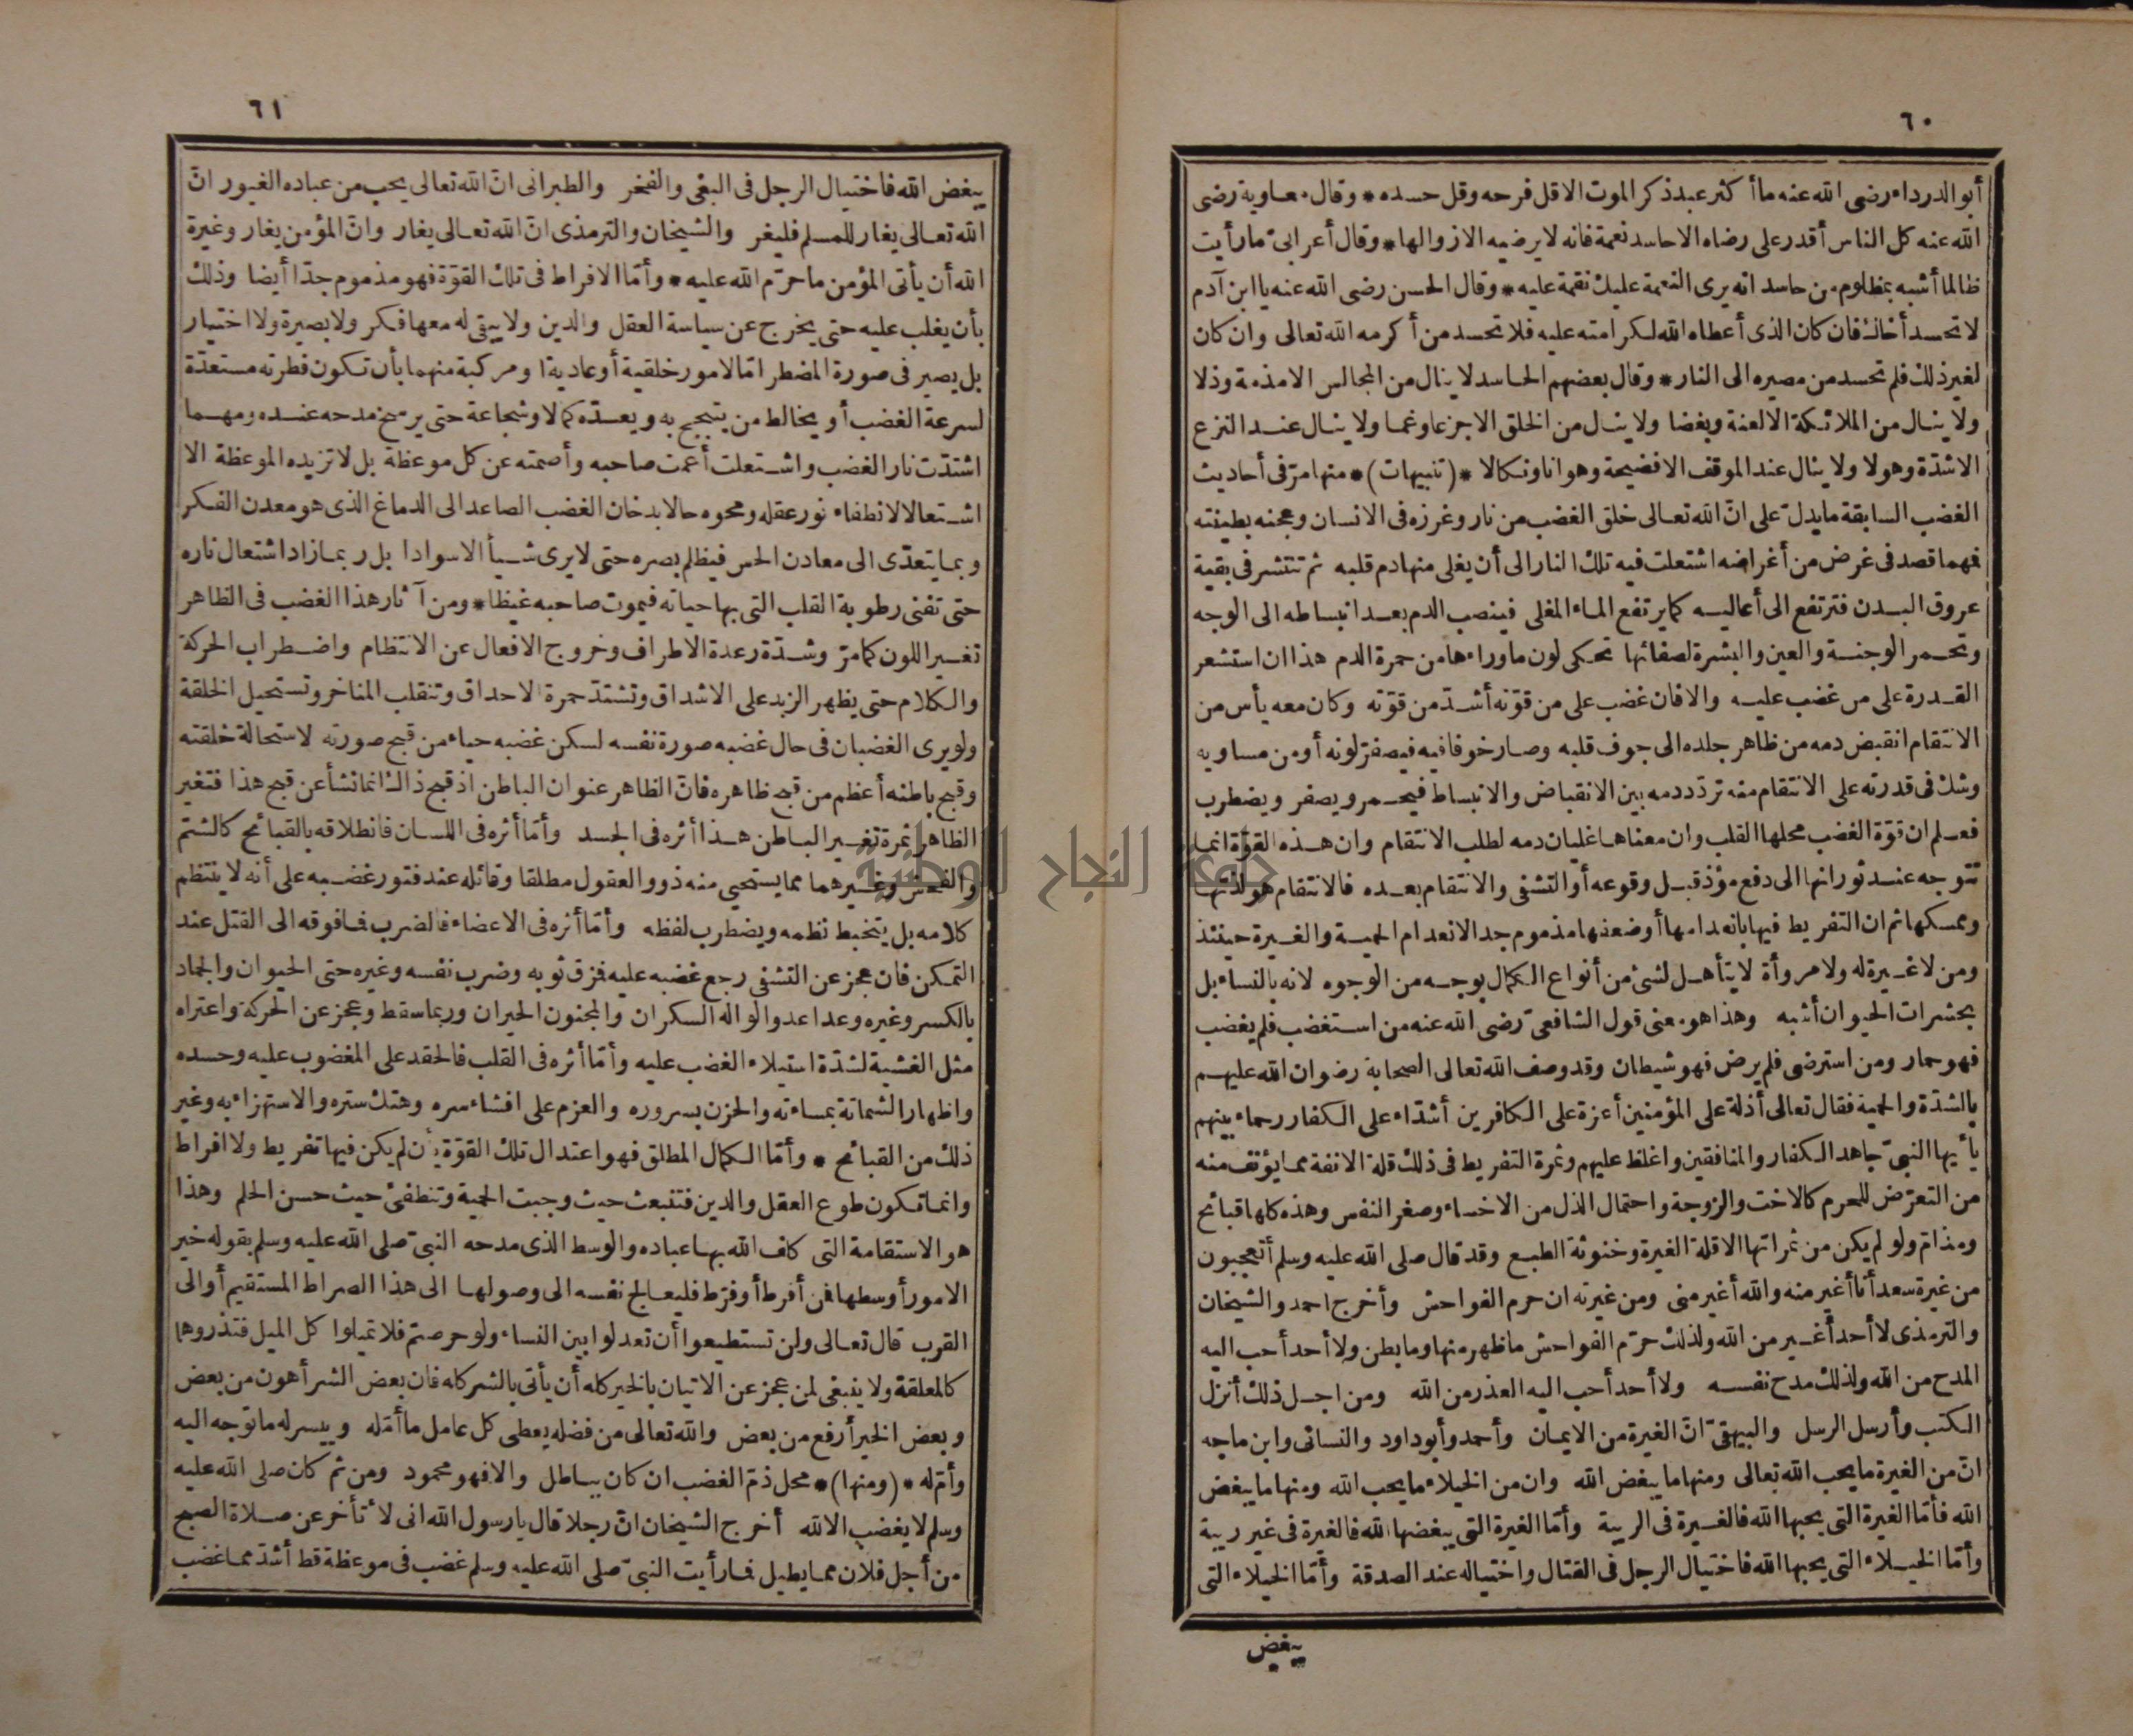 ٦٠
أبو الدرداء رضى الله عنه ما أكثر عبد ذكر الموت الا قل فرحه وقل حسده * وقال معاوية رضى
الله عنه كل الناس أقدر على رضاه الا حاسد نعمة فانه لا يرضيه الا زوالها * وقال أعرابىّ ما رأيت
ظالما أشبه بمظلوم من حاسد انه يرى النعمة عليك نقمة عليه * وقال الحسن رضى الله عنه يا ابن آدم
لا تحسد أخاك فان كان الذى أعطاه الله لكرامته عليه فلا تحسد من أكرمه الله تعالى وان كان
لغير ذلك فلم تحسد من مصيره الى النار * وقال بعضهم الحاسد لا ينال من المجالس الا مذمة وذلا
ولا ينال من الملائكة الا لعنة وبغضا ولا ينال من الخلق الا جزعا وغما ولا ينال عند النزع
الا شدّة وهولا ولا ينال عند الموقف الا فضيحة وهوانا ونكالا * (تنبيهات) * منها مرّ فى أحاديث
الغضب السابقة ما يدلّ على انّ الله تعالى خلق الغضب من نار وغرزه فى الانسان وعجنه بطينته
فهما قصد فى غرض من أغراضه اشتعلت فيه تلك النار الى أن يغلى منها دم قلبه ثم تنتشر فى بقية
عروق البدن فترتفع الى أعاليه كما يرتفع الماء المغلى فينصب الدم بعد انبساطه الى الوجه
وتحمر الوجنة والعين والبشرة لصفائها تحكى لون ما وراءها من حمرة الدم هذا ان استشعر
القدرة على من غضب عليه والا فان غضب على من قوّته أشدّ من قوّته وكان معه يأس من
الانتقام انقبض دمه من ظاهر جلده الى جوف قلبه وصار خوفا فيه فيصفرّ لونه أو من مساويه
وشك فى قدرته على الانتقام منه تردّد دمه بين الانقباض والانبساط فيحمر ويصفر ويضطرب
فعلم ان قوّة الغضب محلها القلب وان معناها غليان دمه لطلب الانتقام وان هذه القوّة انما
تتوجه عند ثورانها الى دفع مؤذ قبل وقوعه أو التشفى والانتقام بعده فالانتقام هو لذتها
وممسكها ثم ان التفريط فيها بانعدامها أو ضعفها مذموم جدا لانعدام الحمية والغيرة حينئذ
ومن لا غيرة له ولا مروأة لا يتأهل لشئ من أنواع الكمال بوجه من الوجوه لانه بالنساء بل
بحشرات الحيوان أشبه وهذا هو معنى قول الشافعىّ رضى الله عنه من استغضب فلم يغضب
فهو حمار ومن استرضى فلم يرض فهو شيطان وقد وصف الله تعالى الصحابة رضوان الله عليهم
بالشدّة والحمية فقال تعالى أذلة على المؤمنين أعزة على الكافرين أشدّاء على الكفار رحماء بينهم
يأيها النبىّ جاهد الكفار والمنافقين واغلظ عليهم وثمرة التفريط فى ذلك قلة الانفة مما يؤنف منه
من التعرّض للمحرم كالاخت والزوجة واحتمال الذل من الاخساء وصغر النفس وهذه كلها قبائح
ومذامّ ولو لم يكن من ثمراتها الا قلة الغيرة وخنوثة الطبع وقد قال صلى الله عليه وسلم أتعجبون
من غيرة سعد أنا أغير منه والله أغير منى ومن غيرته ان حرم الفواحش وأخرج احمد والشيخان
والترمذى لا أحد أغير من الله ولذلك حرّم الفواحش ما ظهر منها وما بطن ولا أحد أحب اليه
المدح من الله ولذلك مدح نفسه ولا أحد أحب اليه العذر من الله ومن اجل ذلك أنزل
الكتب وأرسل الرسل والبيهقىّ انّ الغيرة من الايمان وأحمد وأبو داود والنسائى وابن ماجه
انّ من الغيرة ما يحب الله تعالى ومنها ما يبغض الله وان من الخيلاء ما يحب الله ومنها ما يبغض
الله فأمّا الغيرة التى يحبها الله فالغيرة فى الريبة وأمّا الغيرة التى يبغضها الله فالغيرة فى غير ريبة
وأمّا الخيلاء التى يحبها الله فاختيال الرجل فى القتال واختياله عند الصدقة وأمّا الخيلاء التى
يبغض
٦١
يبغض الله فاختيال الرجل فى البغى والفخر والطبرانى انّ الله تعالى يحب من عباده الغيور انّ
الله تعالى يغار للمسلم فليغر والشيخان والترمذى انّ الله تعالى يغار وانّ المؤمن يغار وغيرة
الله أن يأتى المؤمن ما حرّم الله عليه * وأمّا الافراط فى تلك القوّة فهو مذموم جدّا أيضا وذلك
بأن يغلب عليه حتى يخرج عن سياسة العقل والدين ولا يبقى له معها فكر ولا بصيرة ولا اختيار
بل يصير فى صورة المضطر امّا لامور خلقية أو عادية او مركبة منهما بأن تكون فطرته مستعدّة
لسرعة الغضب أو يخالط من يتبجح به ويعدّه كمالا وشجاعة حتى يرسخ مدحه عنده ومهما
اشتدّت نار الغضب واشتعلت أعمت صاحبه وأصمته عن كل موعظة بل لا تزيده الموعظة الا
اشتعالا لانطفاء نور عقله ومحوه حالا بدخان الغضب الصاعد الى الدماغ الذى هو معدن الفكر
وبما يتعدّى الى معادن الحس فيظلم بصره حتى لا يرى شيأ الا سوادا بل ربما زاد اشتعال ناره
حتى تفنى رطوبة القلب التى بها حياته فيموت صاحبه غيظا * ومن آثار هذا الغضب فى الظاهر
تغير اللون كما مرّ وشدّة رعدة الاطراف وخروج الافعال عن الانتظام واضطراب الحركة
والكلام حتى يظهر الزبد على الاشداق وتشتدّ حمرة الاحداق وتنقلب المناخر وتستحيل الخلقة
ولو يرى الغضبان فى حال غضبه صورة نفسه لسكن غضبه حياء من قبح صورته لاستحالة خلقته
وقبح باطنه أعظم من قبح ظاهره فانّ الظاهر عنوان الباطن اذ قبح ذاك انما نشأ عن قبح هذا فتغير
الظاهر ثمرة تغير الباطن هذا أثره فى الجسد وأمّا أثره فى اللسان فانطلاقه بالقبائح كالشتم
والفحش وغيرهما مما يستحيى منه ذوو العقول مطلقا وقائله عند فتور غضبه على أنه لا ينتظم
كلامه بل يتخبط نظمه ويضطرب لفظه وأمّا أثره فى الاعضاء فالضرب فما فوقه الى القتل عند
التمكن فان عجز عن التشفى رجع غضبه عليه فمزق ثوبه وضرب نفسه وغيره حتى الحيوان والجماد
بالكسر وغيره وعدا عدو الواله السكران والمجنون الحيران وربما سقط وعجز عن الحركة واعتراه
مثل الغشية لشدّة استيلاء الغضب عليه وأمّا أثره فى القلب فالحقد على المغضوب عليه وحسده
واظهار الشماتة بمساءته والحزن بسروره والعزم على افشاء سره وهتك ستره والاستهزاء به وغير
ذلك من القبائح * وأمّا الكمال المطلق فهو اعتدال تلك القوّة بأن لم يكن فيها تفريط ولا افراط
وانما تكون طوع العقل والدين فتنبعث حيث وجبت الحمية وتنطفئ حيث حسن الحلم وهذا
هو الاستقامة التى كلف الله بها عباده والوسط الذى مدحه النبىّ صلى الله عليه وسلم بقوله خير
الامور أوسطها فمن أفرط أو فرّط فليعالج نفسه الى وصولها الى هذا الصراط المستقيم أو الى
القرب قال تعالى ولن تستطيعوا أن تعدلوا بين النساء ولو حرصتم فلا تميلوا كل الميل فتذروها
كالمعلقة ولا ينبغى لمن عجز عن الاتيان بالخير كله أن يأتى بالشر كله فان بعض الشر أهون من بعض
وبعض الخير أرفع من بعض والله تعالى من فضله يعطى كل عامل ما أمّله وييسر له ما توجه اليه
وأمّ له * (ومنها) * محل ذمّ الغضب ان كان بباطل والا فهو محمود ومن ثم كان صلى الله عليه
وسلم لا يغضب الا لله أخرج الشيخان انّ رجلا قال يا رسول الله انى لأتأخر عن صلاة الصبح
من أجل فلان مما يطيل فما رأيت النبىّ صلى الله عليه وسلم غضب فى موعظة قط أشدّ مما غضب
جامعة النجاح الوطنية